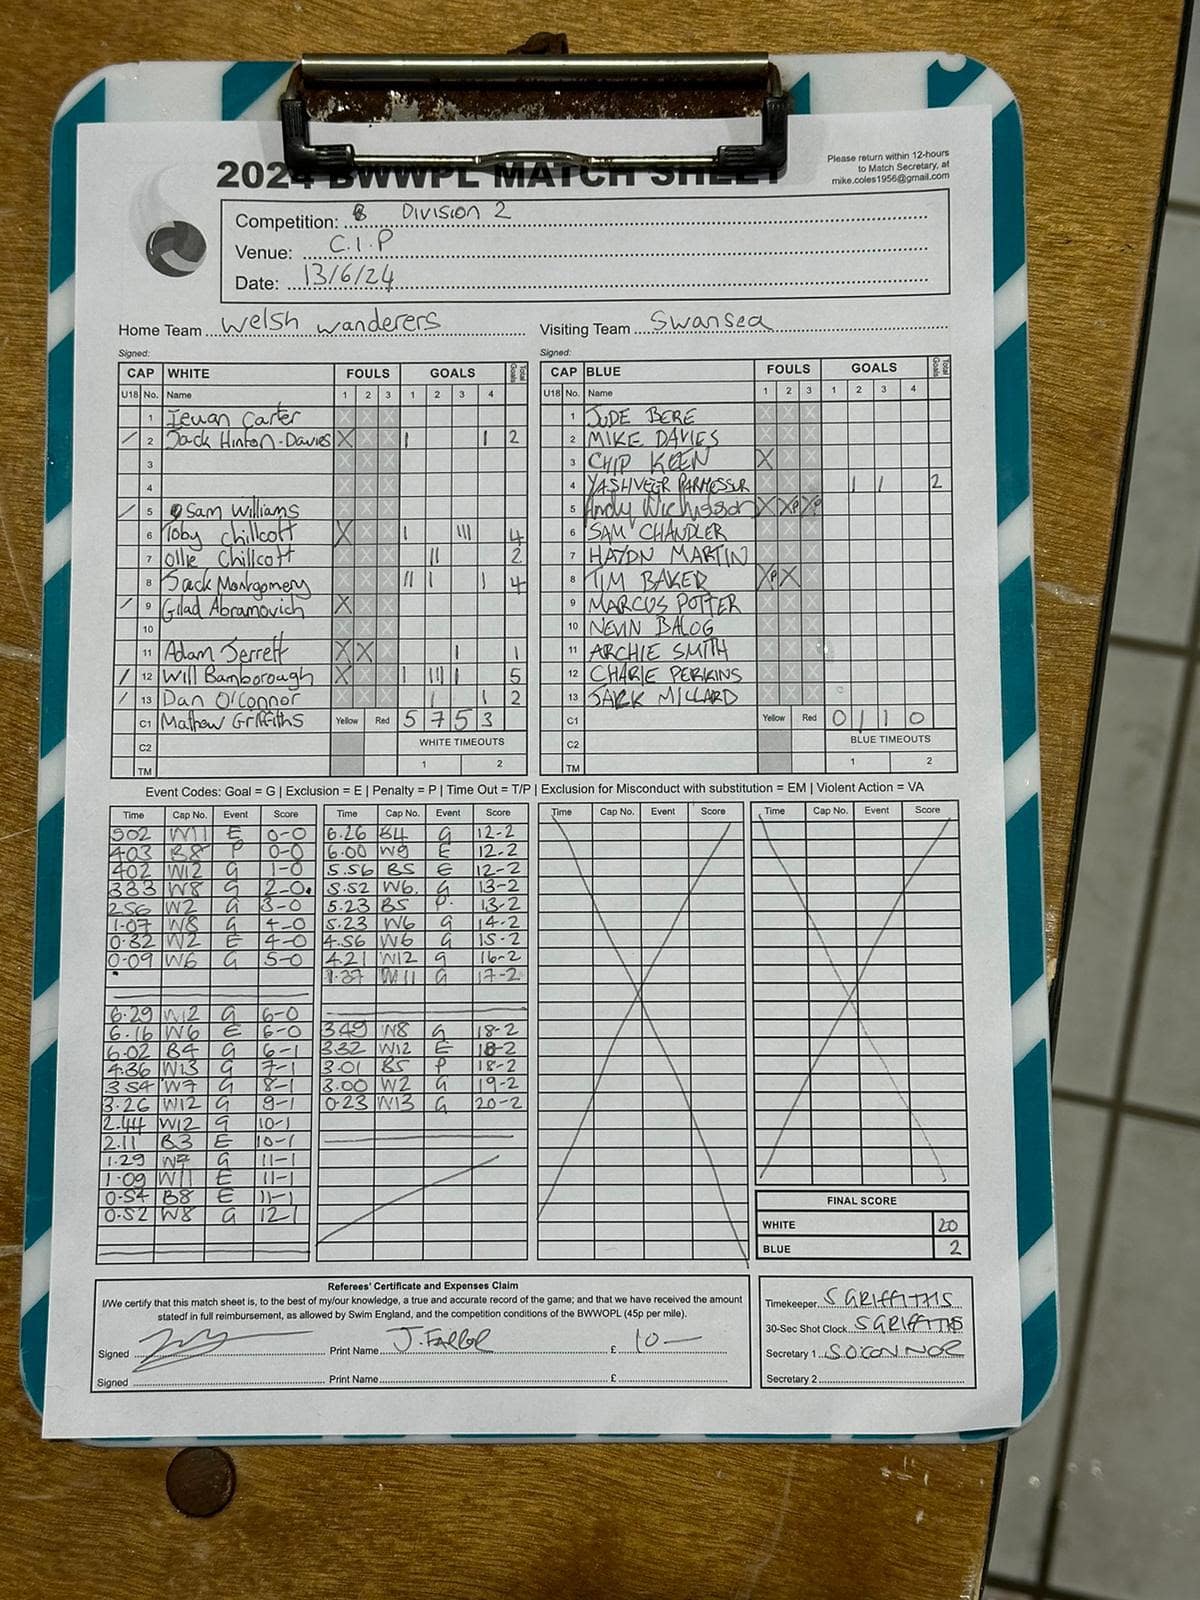 2024 BWWPL MATCH SHEET
Please return within 12-hours
to Match Secretary, at
mike.coles1956@gmail.com
Competition: B Division 2
Venue: C.I.P
Date: 13/6/24
Home Team Welsh Wanderers
Visiting Team Swansea
Signed:
CAP WHITE FOULS GOALS Total Goals
U18 No. Name 1 2 3 1 2 3 4
1 Ieuan Carter
/ 2 Jack Hinton-Davies X | | 2
3
4
/ 5 Sam Williams
6 Toby Chillcott X | ||| 4
7 Ollie Chillcott || 2
8 Jack Montgomery || | | 4
/ 9 Gilad Abramovich X
10
11 Adam Jerrett X X | 1
/ 12 Will Bamborough X | ||| | 5
/ 13 Dan O'Connor | | 2
C1 Mathew Griffiths Yellow Red 5 7 5 3
C2 WHITE TIMEOUTS
TM 1 2
Signed:
CAP BLUE FOULS GOALS Total Goals
U18 No. Name 1 2 3 1 2 3 4
1 JUDE BERE
2 MIKE DAVIES
3 CHIP KEEN X
4 YASHVEER PARMESSUR | | 2
5 Andy X XP XP
6 SAM CHANDLER
7 HAYDN MARTIN
8 TIM BAKER XP X
9 MARCUS POTTER
10 NEVIN BALOG
11 ARCHIE SMITH
12 CHARIE PERKINS
13 JARK MILLARD
C1 Yellow Red 0 1 1 0
C2 BLUE TIMEOUTS
TM 1 2
Event Codes: Goal = G | Exclusion = E | Penalty = P | Time Out = T/P | Exclusion for Misconduct with substitution = EM | Violent Action = VA
Time Cap No. Event Score
502 W11 E 0-0
403 B8 P 0-0
402 W12 G 1-0
333 W8 G 2-0
256 W2 G 3-0
1.07 W8 G 4-0
0.32 W2 E 4-0
0.09 W6 G 5-0
6.29 W12 G 6-0
6.16 W6 E 6-0
6.02 B4 G 6-1
4.36 W13 G 7-1
3.54 W7 G 8-1
3.26 W12 G 9-1
2.44 W12 G 10-1
2.11 B3 E 10-1
1.29 W7 G 11-1
1.09 W11 E 11-1
0.54 B8 E 11-1
0.52 W8 G 12-1
Time Cap No. Event Score
6.26 B4 G 12-2
6.00 W9 E 12-2
5.56 B5 E 12-2
5.52 W6 G 13-2
5.23 B5 P. 13-2
5.23 W6 G 14-2
4.56 W6 G 15-2
4.21 W12 G 16-2
1.37 W11 G 17-2
3.49 W8 G 18-2
3.32 W12 E 18-2
3.01 B5 P 18-2
3.00 W2 G 19-2
0.23 W13 G 20-2
Time Cap No. Event Score
Time Cap No. Event Score
FINAL SCORE
WHITE 20
BLUE 2
Referees' Certificate and Expenses Claim
I/We certify that this match sheet is, to the best of my/our knowledge, a true and accurate record of the game; and that we have received the amount
statedf in full reimbursement, as allowed by Swim England, and the competition conditions of the BWWOPL (45p per mile).
Signed Print Name J. £ 10—
Signed Print Name £
Timekeeper S GRIFFITHS
30-Sec Shot Clock S GRIFFITHS
Secretary 1 S OCONNOR
Secretary 2